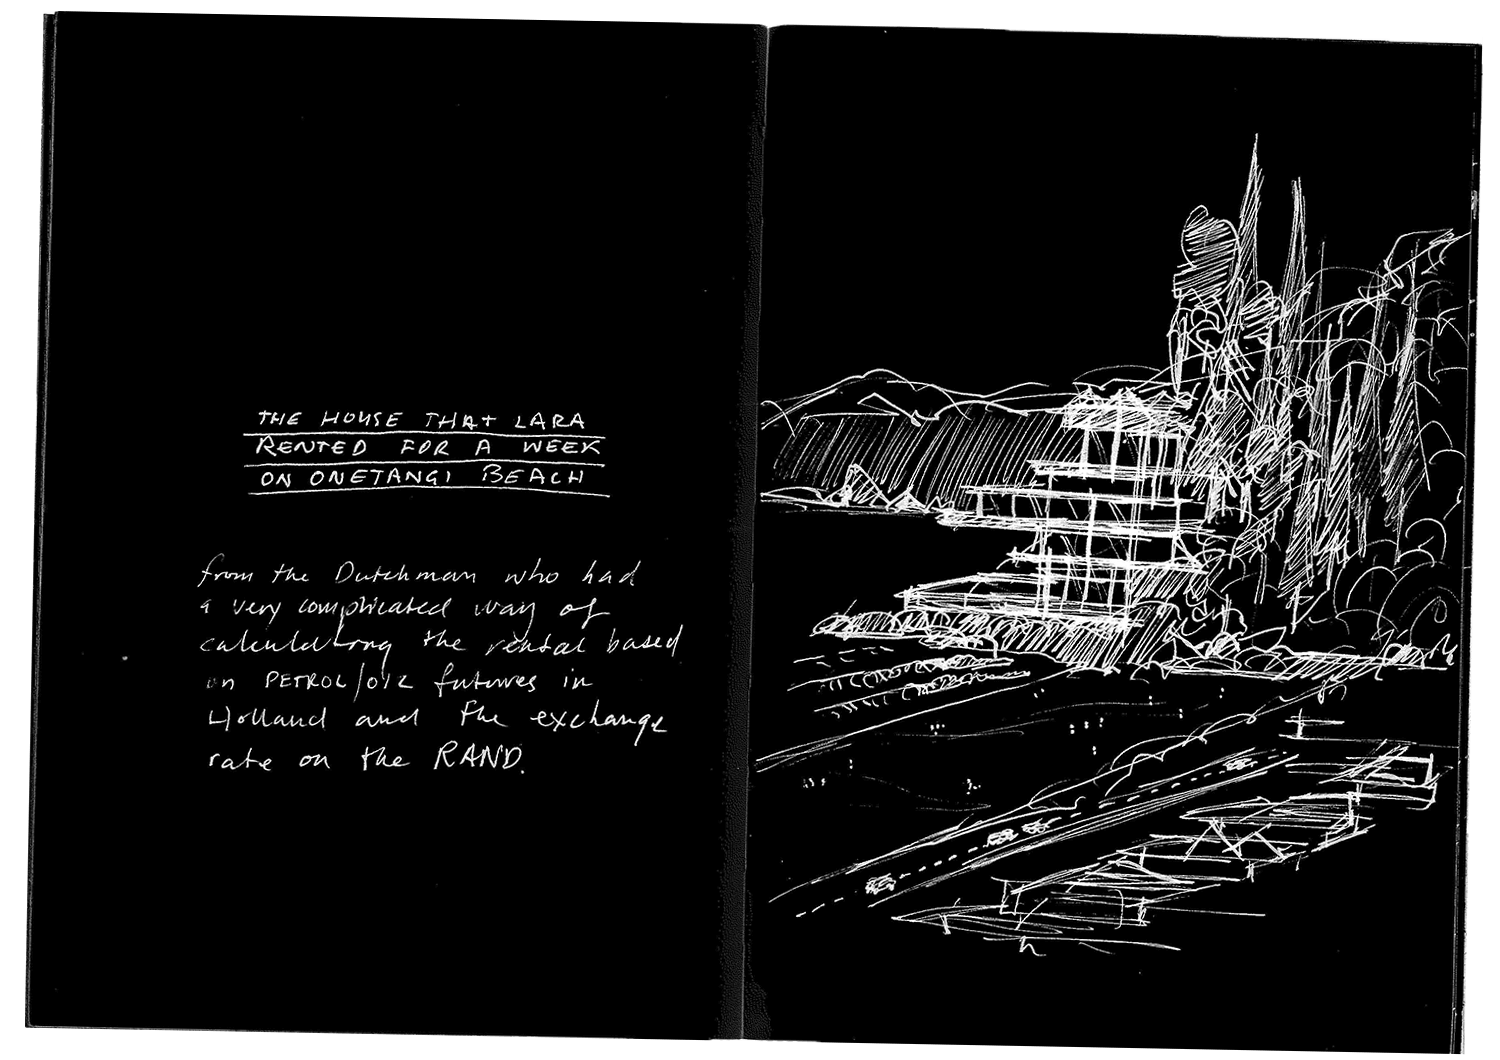 THE HOUSE THAT LARA
RENTED FOR A WEEK
ON ONETANGI BEACH
from the Dutchman who had
a very complicated way of
calculating the rental based
on PETROL/OIL futures in
Holland and the exchange
rate on the RAND.